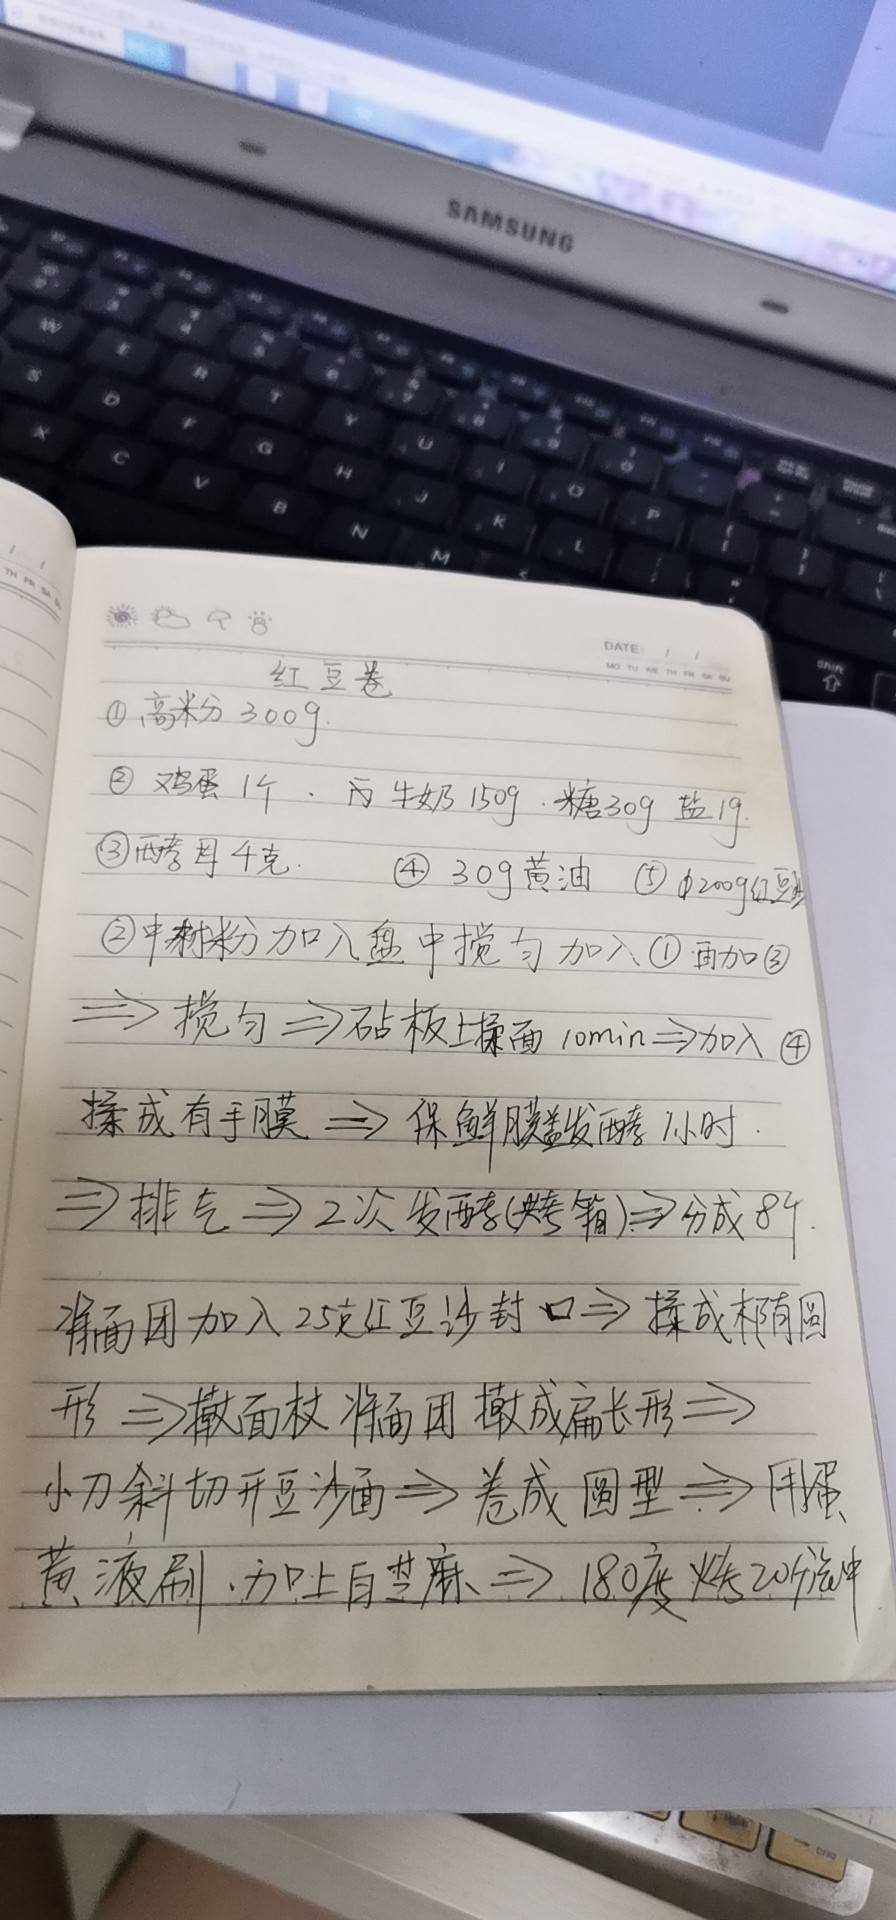 SAMSUNG
W E R T Y U I O P
S D F G H J K L
X C V B N M
Shift
TH FR SA SU
DATE / /
MO TU WE TH FR SA SU
红豆卷
① 高粉 300g.
② 鸡蛋 1个 . 牛奶 150g . 糖30g 盐1g.
③ 酵母 4克. ④ 30g黄油 ⑤ 200g红豆沙
②中材粉加入盘中搅匀 加入① 再加③
⇒ 搅匀 ⇒ 砧板上揉面 10min ⇒ 加入 ④
揉成有手膜 ⇒ 保鲜膜盖发酵 1小时.
⇒ 排气 ⇒ 2次发酵(烤箱) ⇒ 分成8个.
将面团加入25克红豆沙封口 ⇒ 揉成椭圆
形 ⇒ 擀面杖将面团擀成扁长形 ⇒
小刀斜切开豆沙面 ⇒ 卷成圆型 ⇒ 用蛋
黄液刷.加上白芝麻 ⇒ 180度烤20分钟